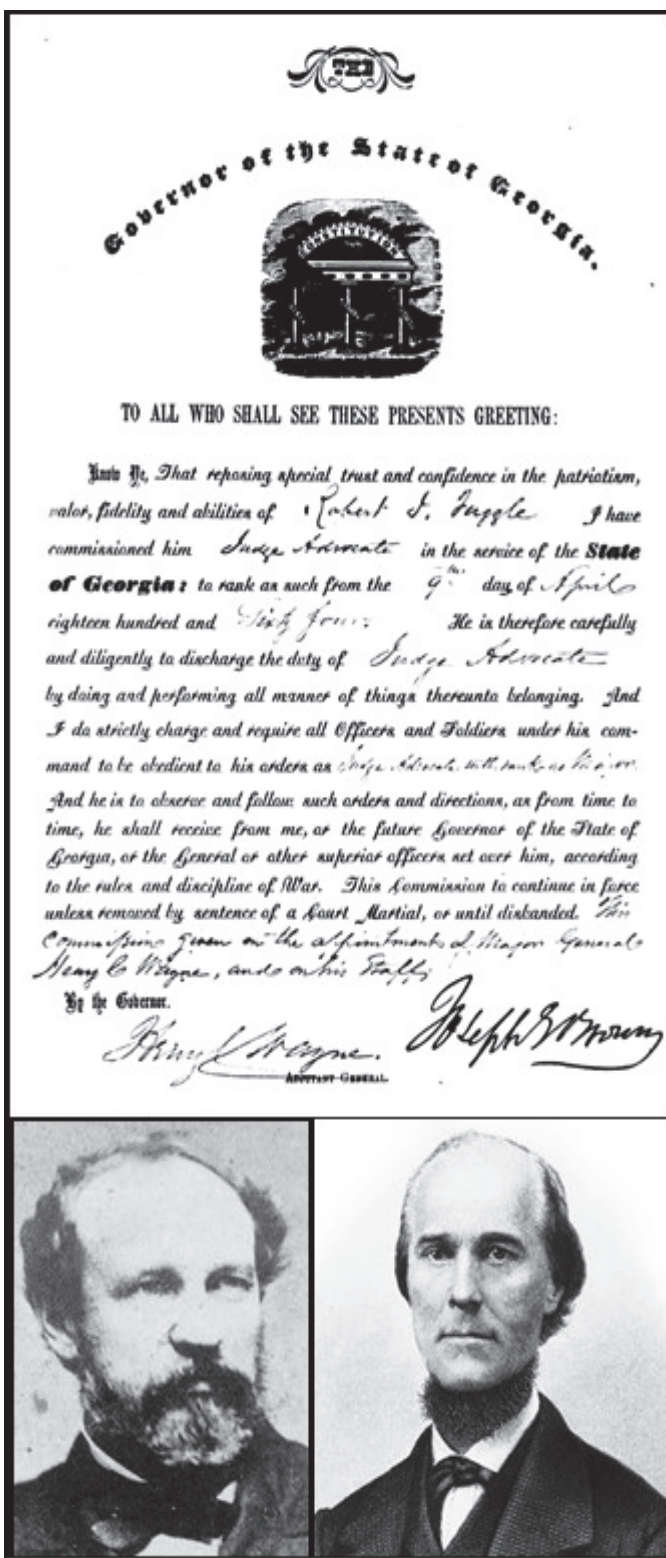 THE
Governor of the State of Georgia.
TO ALL WHO SHALL SEE THESE PRESENTS GREETING:
Know Ye, That reposing special trust and confidence in the patriotism,
valor, fidelity and abilities of Robert J. Tuggle I have
commissioned him Judge Advocate in the service of the State
of Georgia: to rank as such from the 9th day of April
eighteen hundred and Sixty four. He is therefore carefully
and diligently to discharge the duty of Judge Advocate
by doing and performing all manner of things thereunto belonging. And
I do strictly charge and require all Officers and Soldiers under his com-
mand to be obedient to his orders as Judge Advocate with rank as Major.
And he is to observe and follow such orders and directions, as from time to
time, he shall receive from me, or the future Governor of the State of
Georgia, or the General or other superior officers set over him, according
to the rules and discipline of War. This Commission to continue in force
unless removed by sentence of a Court Martial, or until disbanded. This
Commission given on the appointment of Major General
Henry C Wayne, and on his Staff.
By the Governor.
Henry C Wayne. Joseph E Brown
ADJUTANT GENERAL.